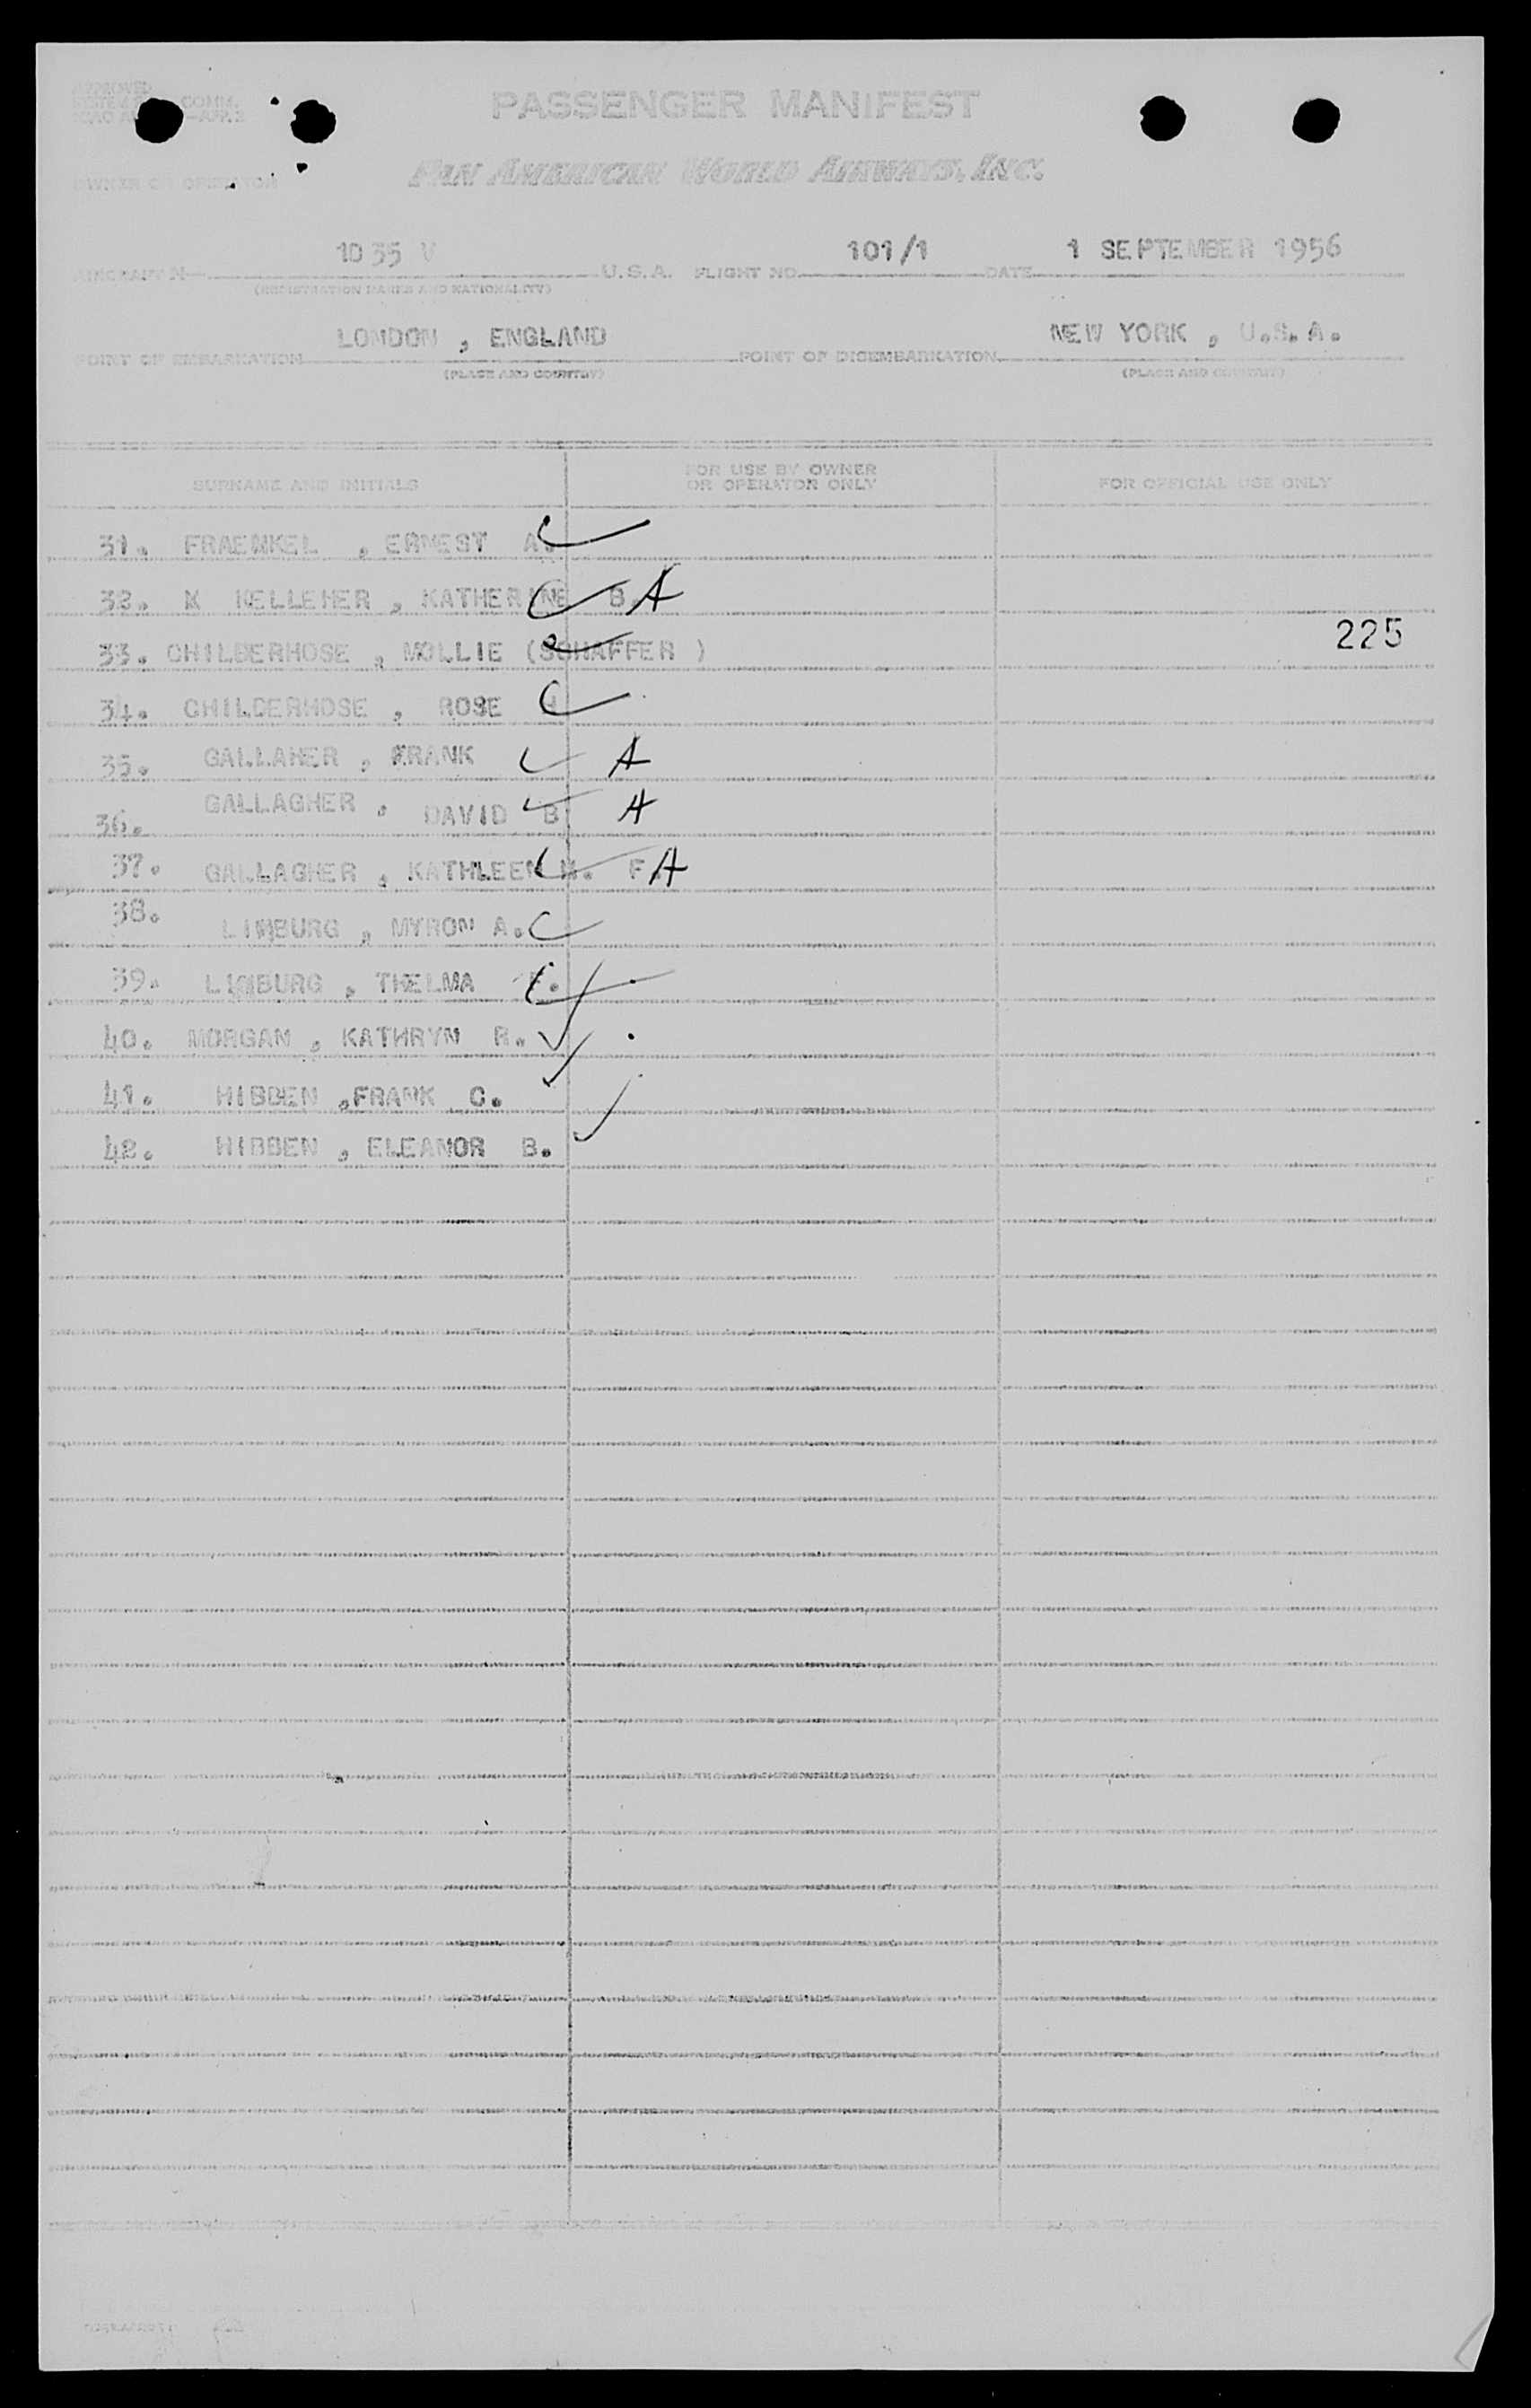 APPROVED
SYSTEM COMM.
ICAO APP. 3
PASSENGER MANIFEST
OWNER OR OPERATOR
PAN AMERICAN WORLD AIRWAYS, INC.
AIRCRAFT N 1035 V U.S.A. FLIGHT NO. 101/1 DATE 1 SEPTEMBER 1956
(REGISTRATION MARKS AND NATIONALITY)
POINT OF EMBARKATION LONDON , ENGLAND POINT OF DISEMBARKATION NEW YORK , U.S.A.
(PLACE AND COUNTRY) (PLACE AND COUNTRY)
SURNAME AND INITIALS FOR USE BY OWNER OR OPERATOR ONLY FOR OFFICIAL USE ONLY
31. FRAENKEL , ERNEST A.
32. K KELLEHER , KATHERINE B. A
33. CHILDERHOSE , MOLLIE (SCHAFFER ) 225
34. CHILDERHOSE , ROSE
35. GALLAHER , FRANK A
36. GALLAGHER , DAVID B A
37. GALLAGHER , KATHLEEN M. F A
38. LIMBURG , MYRON A.
39. LIMBURG , THELMA F.
40. MORGAN , KATHRYN R.
41. HIBBEN ,FRANK C.
42. HIBBEN , ELEANOR B.